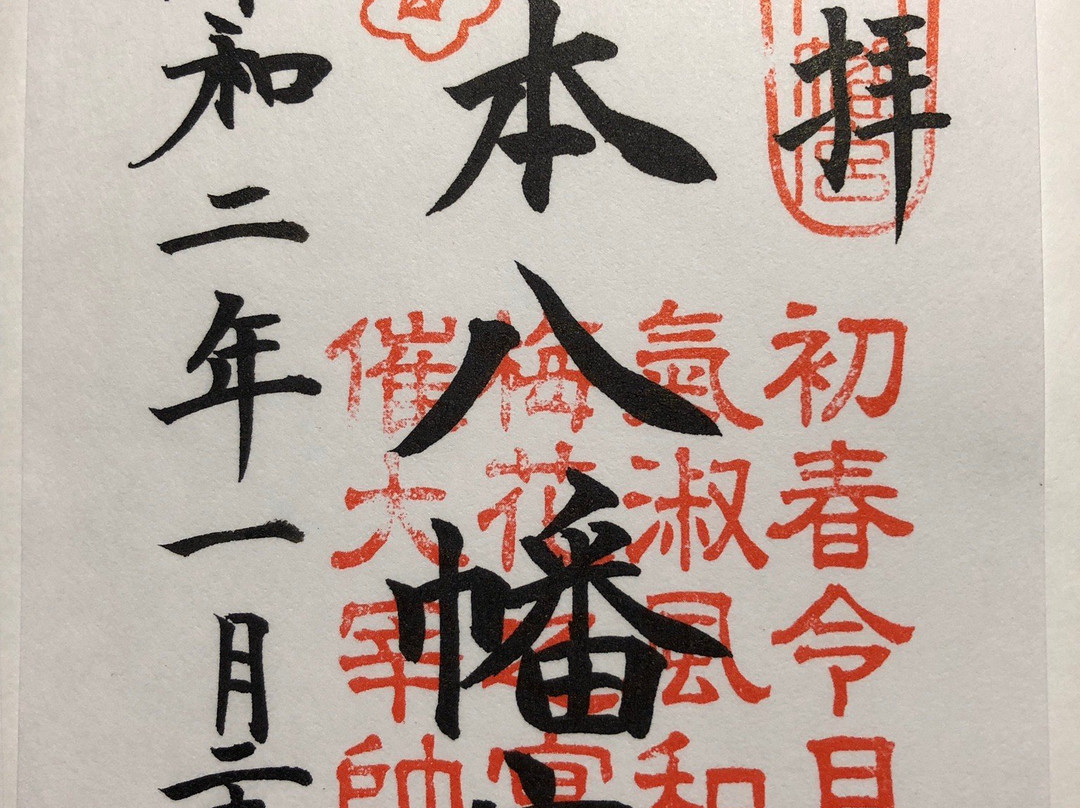 拝
初春令月
氣淑風和
本八幡
梅花
催大宰帥
和二年一月二